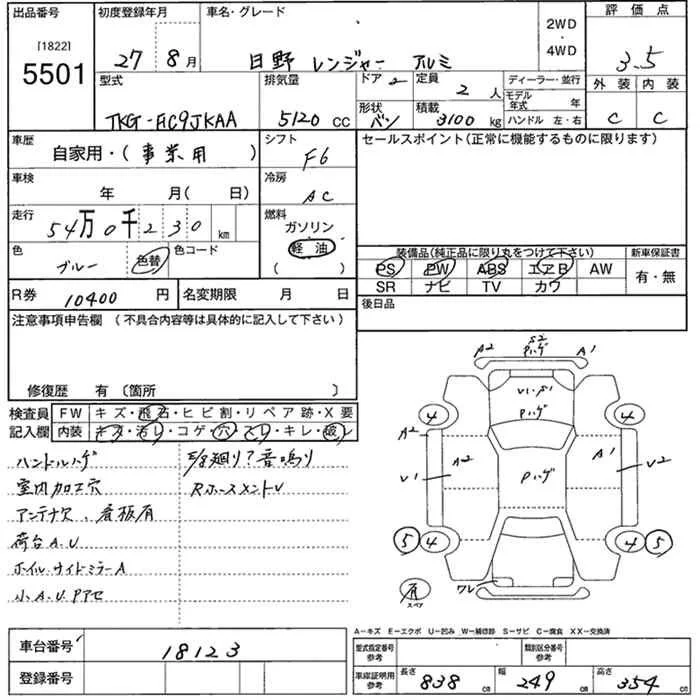 出品番号
[1822]
5501
初度登録年月
27 8月
車名・グレード
日野 レンジャー アルミ
2WD
・
4WD
評価点
3.5
型式
TKG-FC9JKAA
排気量
5120 CC
ドア 2
定員 2 人
形状 バン
積載 3100 kg
ディーラー・並行
モデル年式 年
ハンドル 左・右
外装 内装
C C
車歴
自家用・(事業用)
シフト
F6
車検
年 月(日)
冷房
AC
走行
54万0千230km
燃料
ガソリン
軽油
( )
色
ブルー
色替
色コード
セールスポイント(正常に機能するものに限ります)
装備品(純正品に限り丸をつけて下さい)
新車保証書
PS PW ABS エアB AW
SR ナビ TV カワ
有・無
R券 10400 円
名変期限 月 日
後日品
注意事項申告欄 (不具合内容等は具体的に記入して下さい)
修復歴 有〔箇所 〕
検査員
記入欄
FW キズ・飛石・ヒビ割・リペア跡・X要
内装 キズ・汚レ・コゲ・穴・スレ・キレ・破レ
ハンドルハゲ
室内加工穴
アンテナ欠、看板有
荷台A.U
ホイル.サイドミラーA
小A.U.Pアセ
E/g廻り?音鳴り
RホースメントU
A2 S2 Pハゲ A1
V1・S1
Pハゲ
4 4
A2 A2 A1
V1 Pハゲ V2
5 4 4 5
ワレ
有
スペア
A-キズ E-エクボ U-凹み W-補修跡 S-サビ C-腐食 XX-交換済
車台番号 18123
登録番号
型式指定番号
参考
類別区分番号
参考
車庫証明用
参考
長さ 838 cm
幅 249 cm
高さ 354 cm